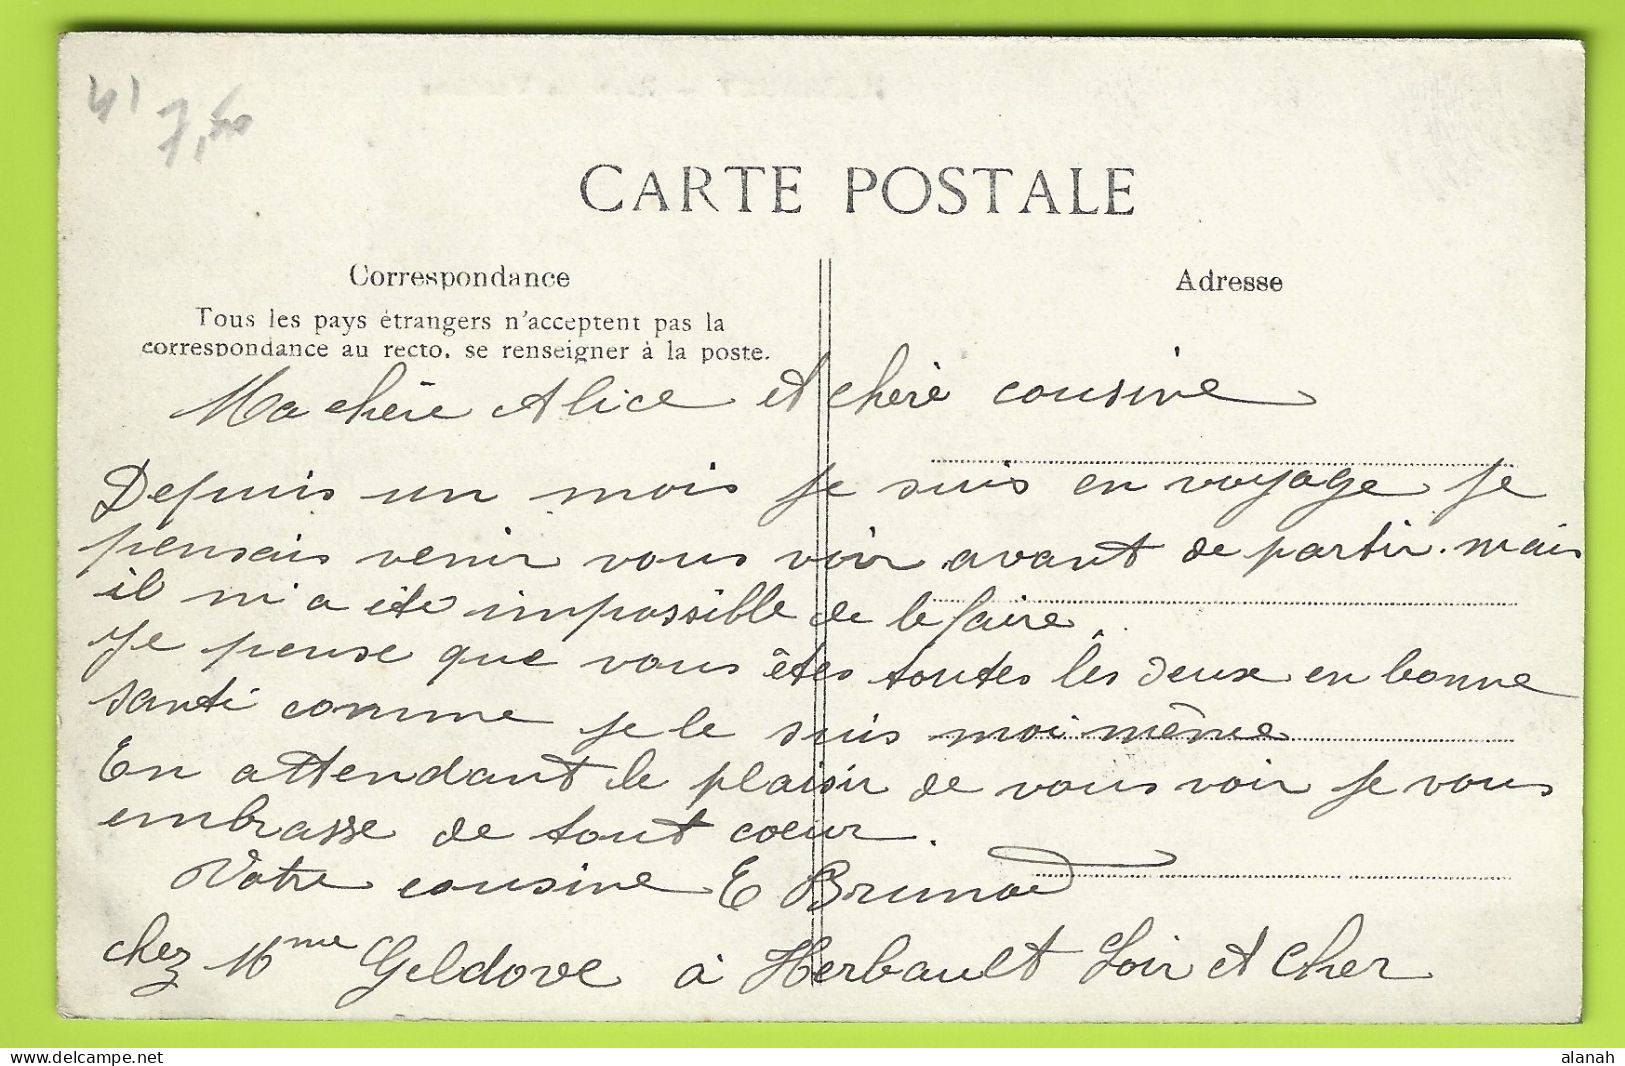 41
7,50
CARTE POSTALE
Correspondance
Adresse
Tous les pays étrangers n'acceptent pas la
correspondance au recto, se renseigner à la poste.
Ma chère Alice et chère cousine
Depuis un mois je suis en voyage je
pensais venir vous voir avant de partir. mais
il m'a été impossible de le faire.
Je pense que vous êtes toutes les deux en bonne
santé comme je le suis moi même
En attendant le plaisir de vous voir je vous
embrasse de tout coeur.
Votre cousine E
chez Mme Geldove à Herbault Loir et Cher
alanah